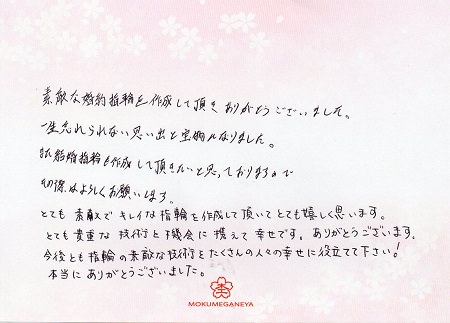 素敵な婚約指輪を作成して頂きありがとうございました。
一生忘れられない思い出と宝物になりました。
結婚指輪も作成して頂きたいと思っておりますので
その際はよろしくお願いします。
とても素敵でキレイな指輪を作成して頂いてとても嬉しく思います。
とても貴重な技術と機会に携えて幸せです。ありがとうございます。
今後とも指輪の素敵な技術をたくさんの人々の幸せに役立てて下さい!
本当にありがとうございました。
MOKUMEGANEYA